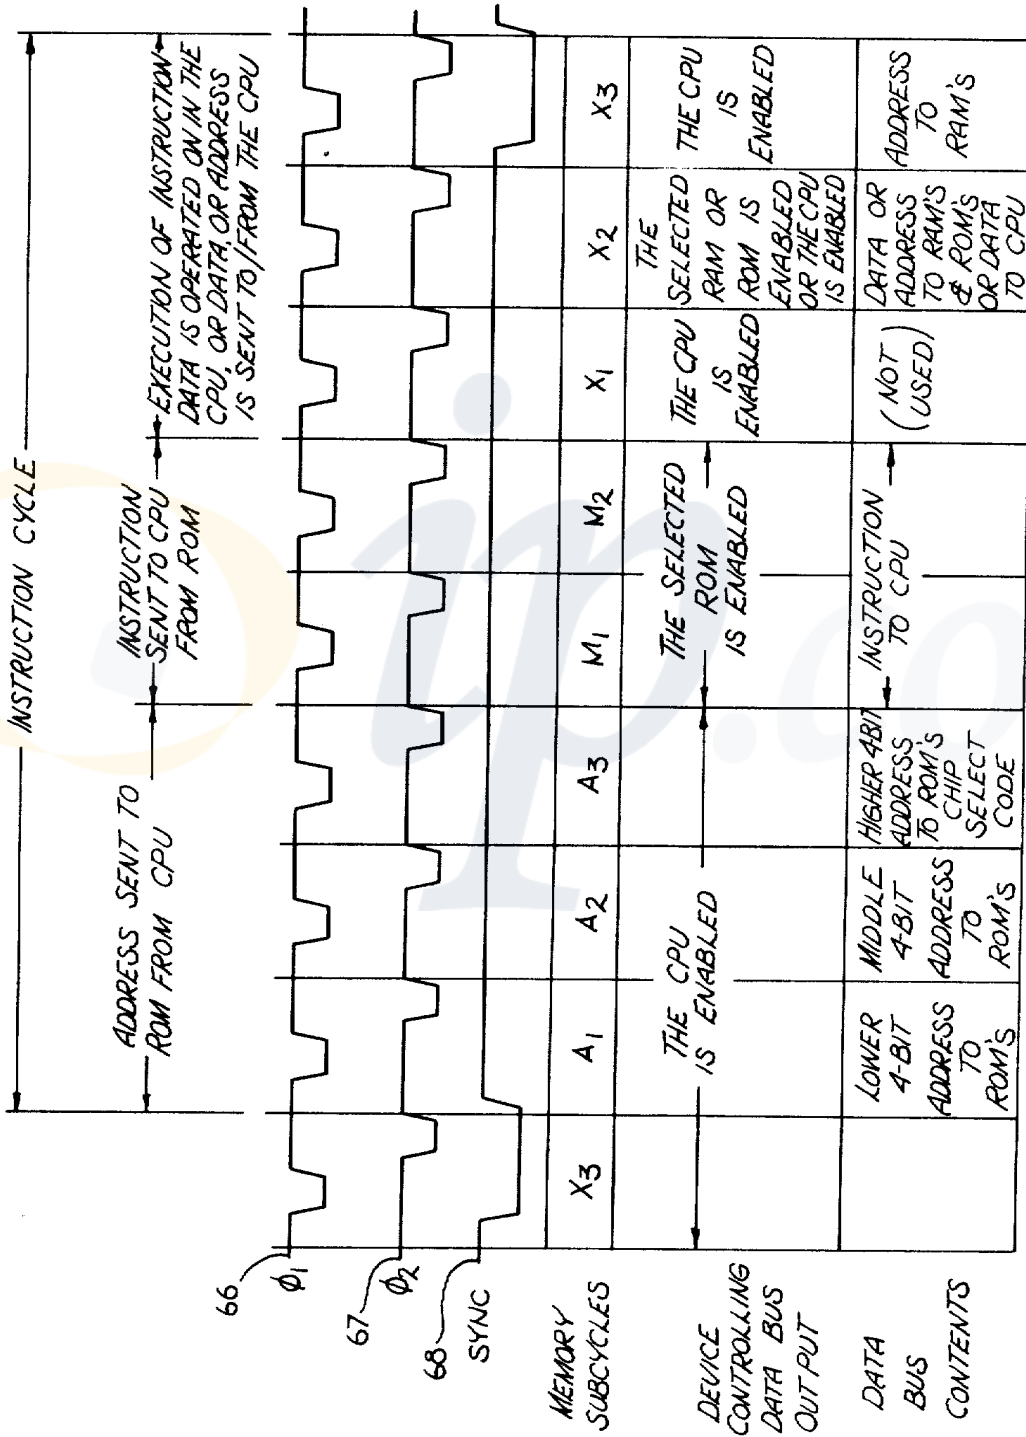 INSTRUCTION CYCLE
ADDRESS SENT TO
ROM FROM CPU
INSTRUCTION
SENT TO CPU
FROM ROM
EXECUTION OF INSTRUCTION
DATA IS OPERATED ON IN THE
CPU, OR DATA, OR ADDRESS
IS SENT TO/FROM THE CPU
66
ϕ1
67
ϕ2
68
SYNC
MEMORY
SUBCYCLES
X3
A1
A2
A3
M1
M2
X1
X2
X3
DEVICE
CONTROLLING
DATA BUS
OUTPUT
THE CPU
IS ENABLED
THE SELECTED
ROM
IS ENABLED
THE CPU
IS
ENABLED
THE
SELECTED
RAM OR
ROM IS
ENABLED
OR THE CPU
IS ENABLED
THE CPU
IS
ENABLED
DATA
BUS
CONTENTS
LOWER
4-BIT
ADDRESS
TO
ROM'S
MIDDLE
4-BIT
ADDRESS
TO
ROM'S
HIGHER 4-BIT
ADDRESS
TO ROM'S
CHIP
SELECT
CODE
INSTRUCTION
TO CPU
(NOT
USED)
DATA OR
ADDRESS
TO RAM'S
& ROM'S
OR DATA
TO CPU
ADDRESS
TO
RAM'S
ip.co